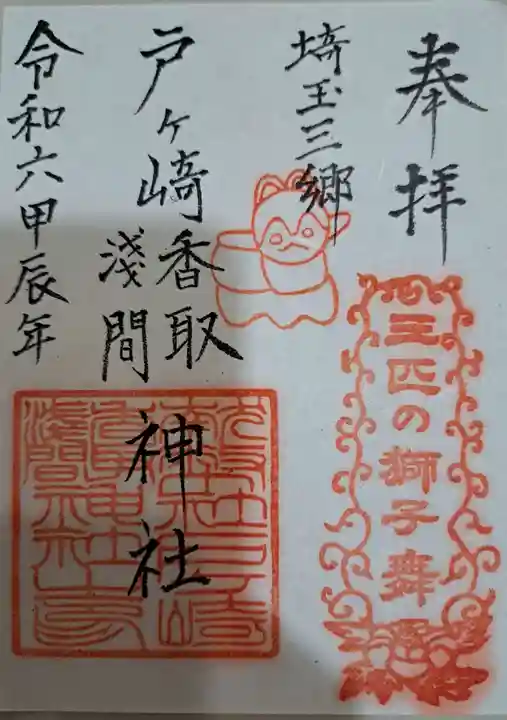 奉拝
三匹の獅子舞
埼玉三郷
戸ヶ崎香取
淺間
神社
令和六甲辰年